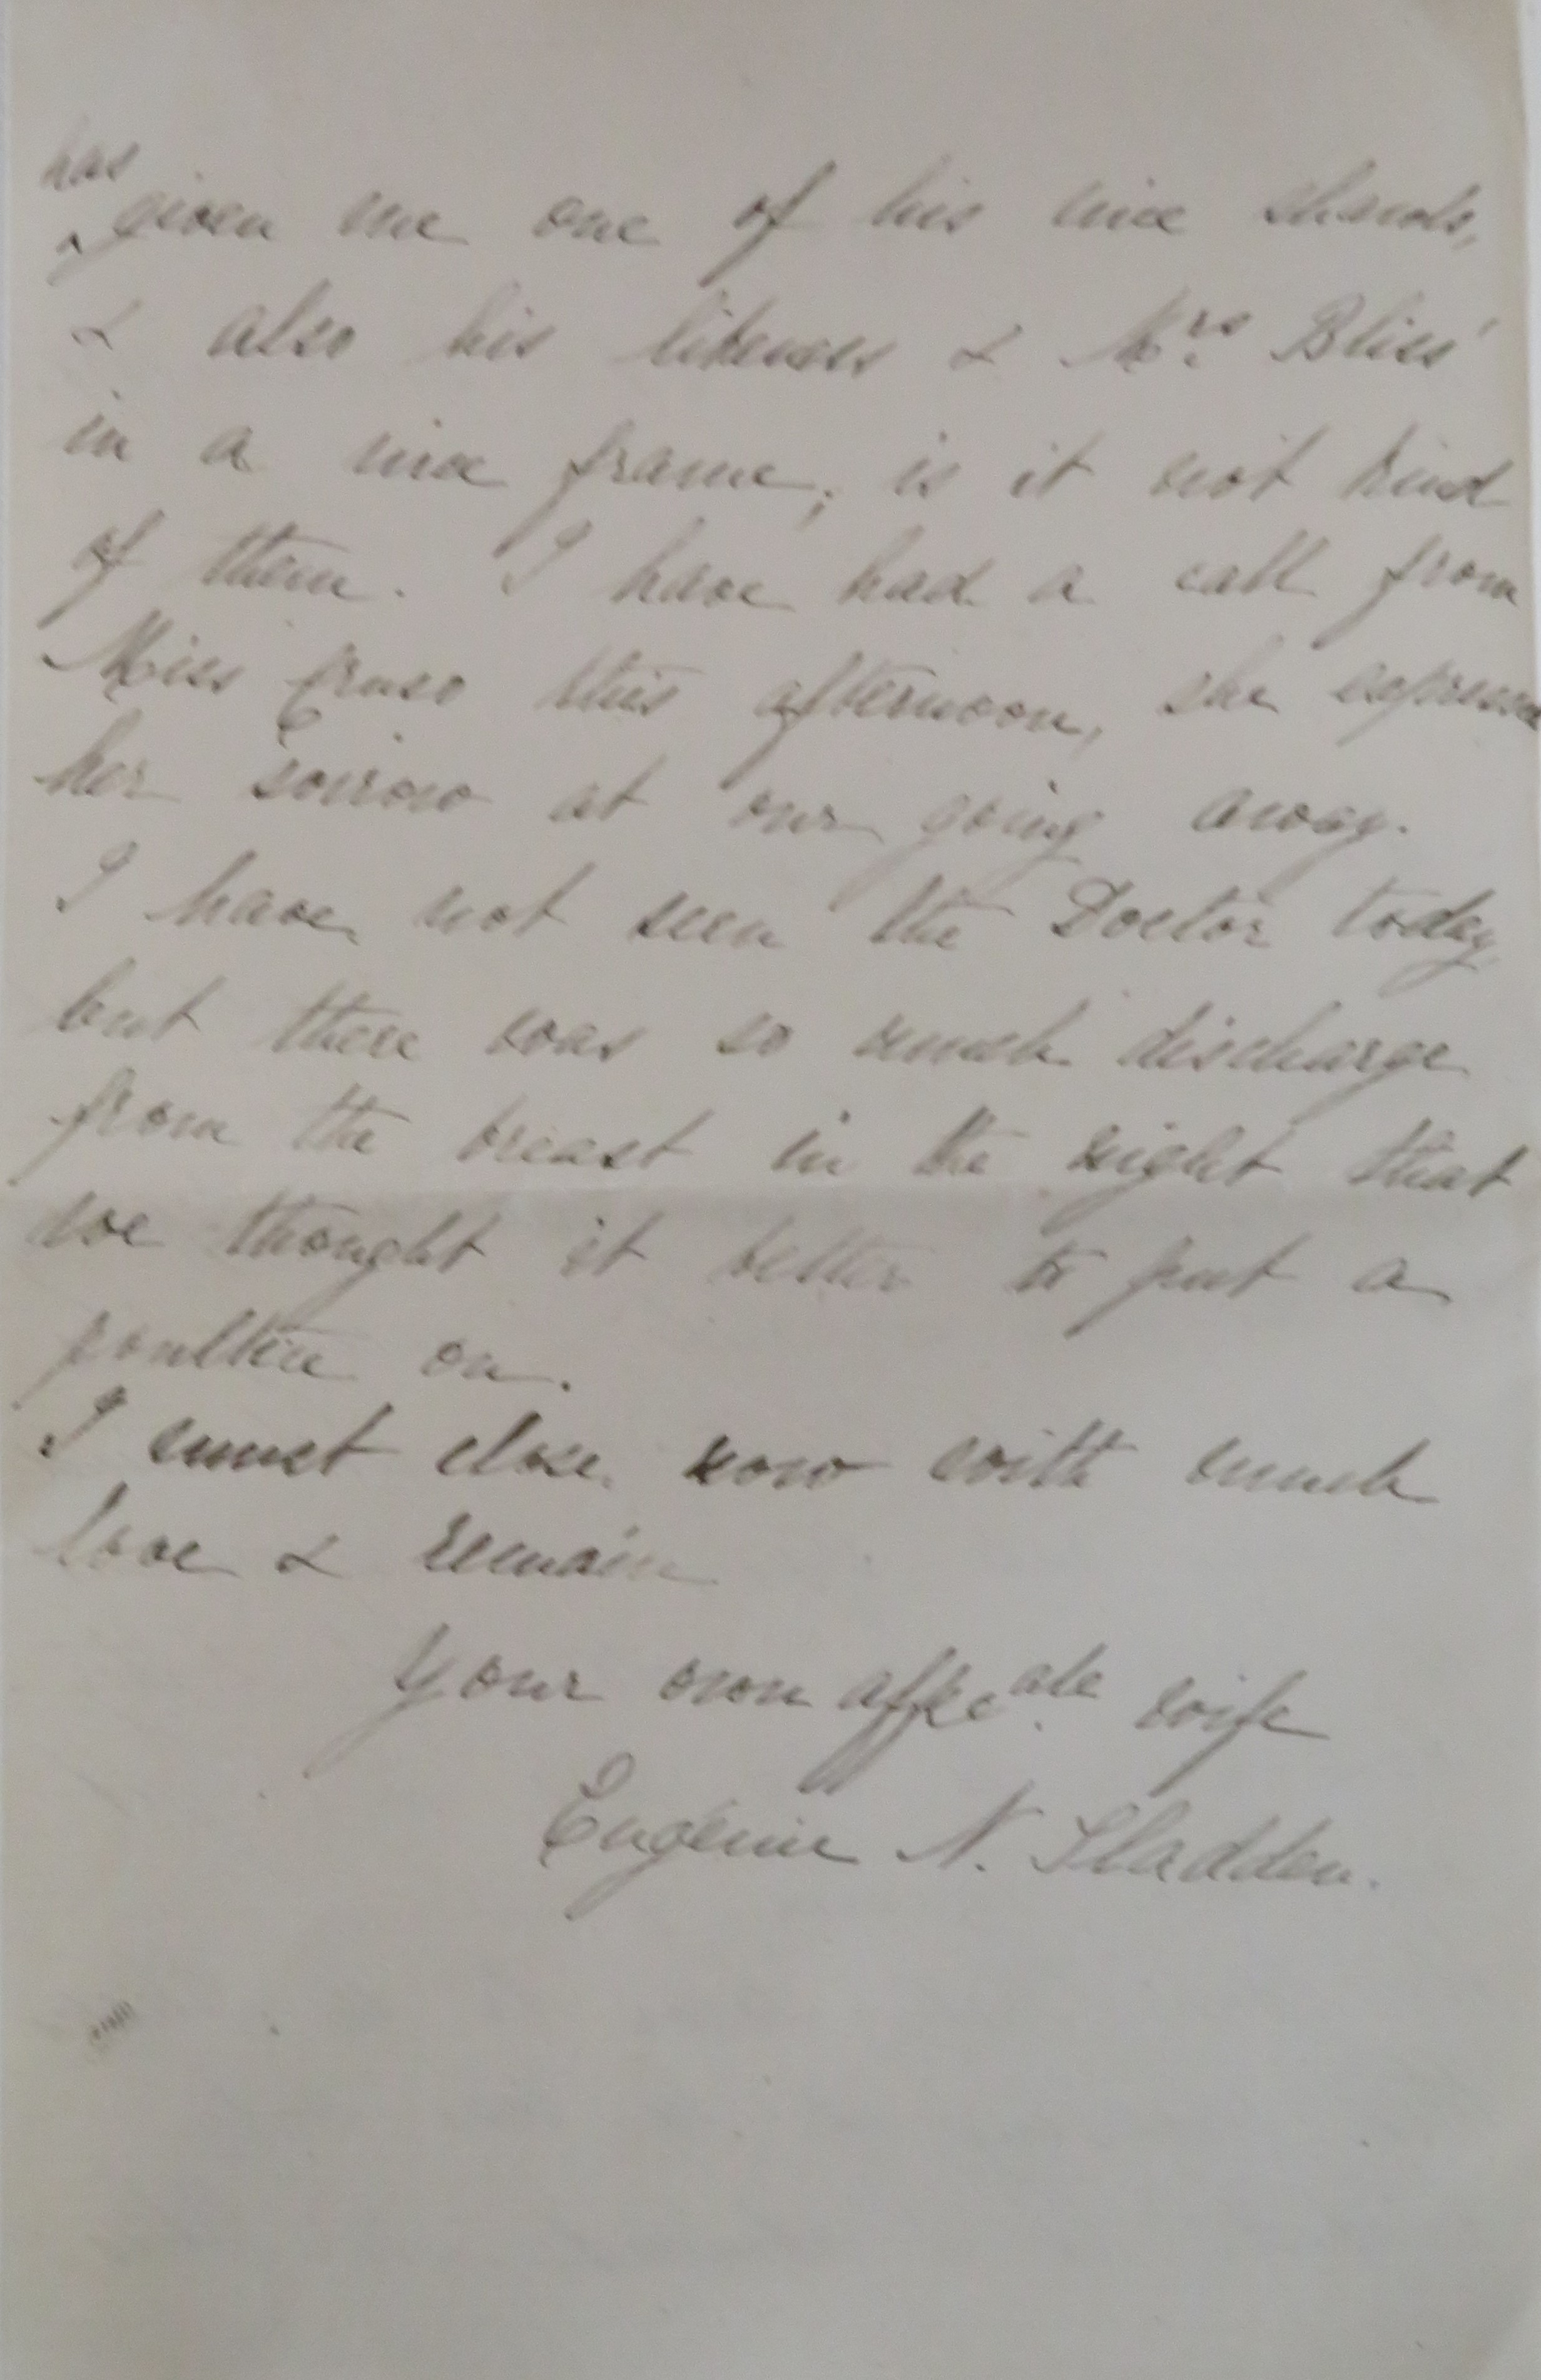 has
^given me one of his nice shawls,
& also his likeness & Mrs. Bliss'
in a nice frame; is it not kind
of them. I have had a call from
Miss Cruso this afternoon, she expressed
her sorrow at our going away.
I have not seen the Doctor today,
but there was so much discharge
from the breast in the night that
we thought it better to put a
poultice on.
I must close now with much
love & remain
Your own affec.ate wife
Eugénie N. Sladden.